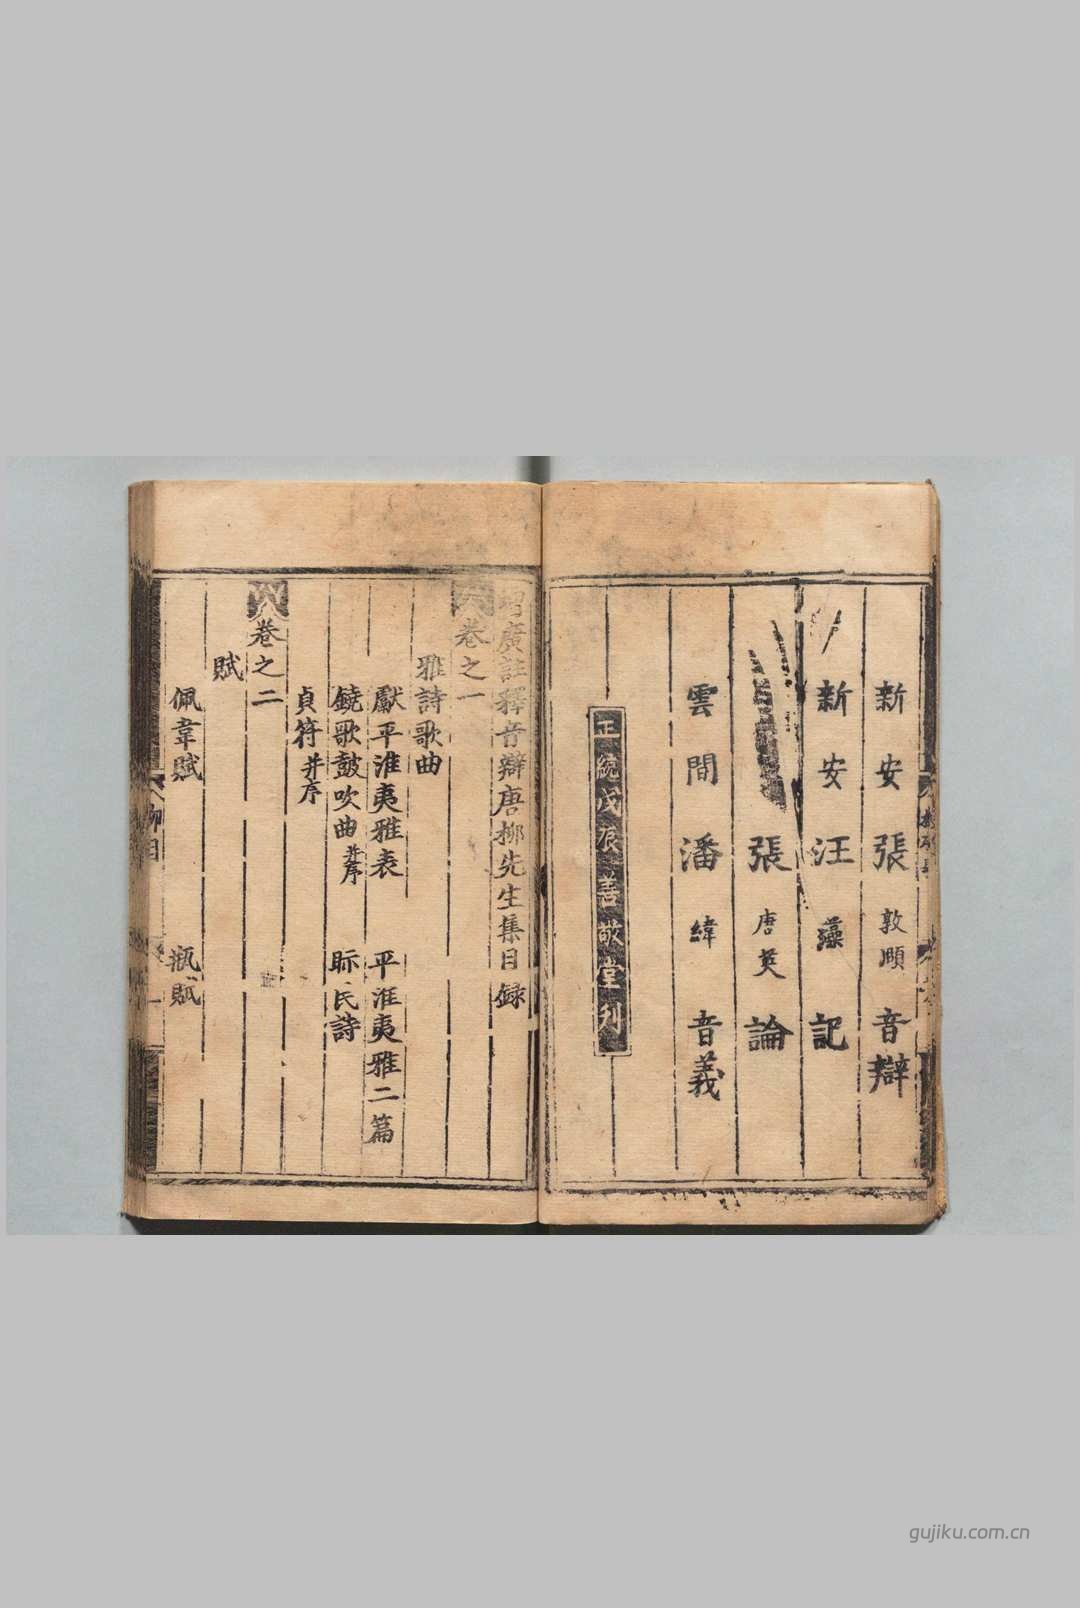 新安張敦頤音辯
新安汪藻記
張唐英論
雲間潘緯音義
正統戊辰善敬堂刊
增廣註釋音辯唐柳先生集目錄
卷之一
雅詩歌曲
獻平淮夷雅表 平淮夷雅二篇
鐃歌鼓吹曲并序 眎民詩
貞符并序
卷之二
賦
佩韋賦 瓶賦
柳目
一
gujiku.com.cn